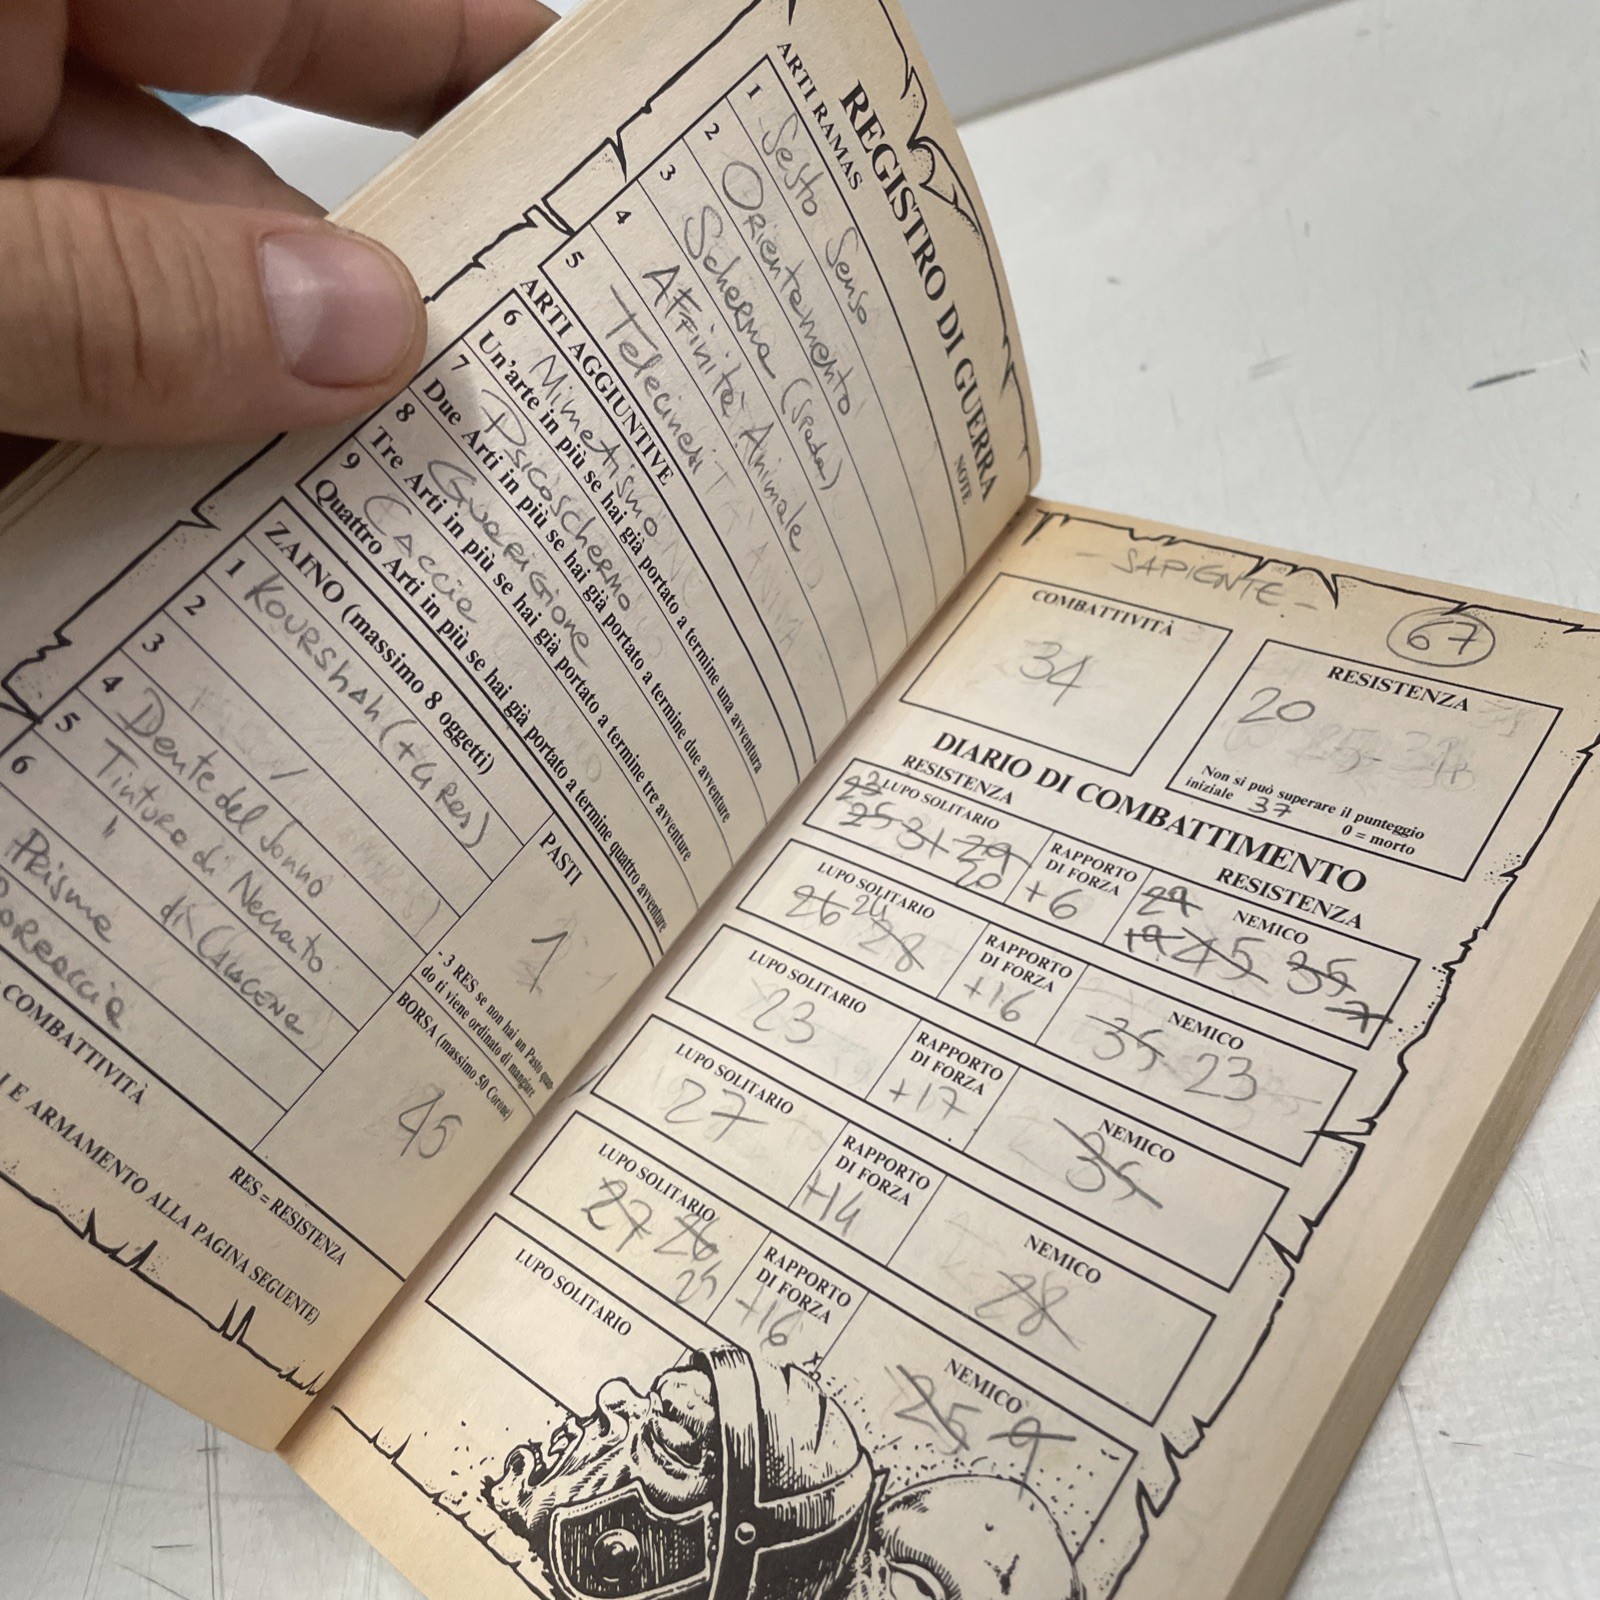 REGISTRO DI GUERRA
ARTI RAMAS
NOTE
1 - Sesto Senso
2 Orientamento
3 Scherma (spada)
4 Affinità Animale
5 Telecinesi
ARTI AGGIUNTIVE
6 Mimetismo
Un'arte in più se hai già portato a termine una avventura
7 Psicoschermo
Due Arti in più se hai già portato a termine due avventure
8 Guarigione
Tre Arti in più se hai già portato a termine tre avventure
9 Caccia
Quattro Arti in più se hai già portato a termine quattro avventure
ZAINO (massimo 8 oggetti)
PASTI
1 Kourshah (+4 Res)
2
3
4 Dente del Sonno
5 Tintura di Necranto
6 " di
Prisma
1
- 3 RES se non hai un Pasto quan-
do ti viene ordinato di mangiare
BORSA (massimo 50 Corone)
45
COMBATTIVITÀ
RES = RESISTENZA
I E ARMAMENTO ALLA PAGINA SEGUENTE)
- SAPIENTE -
67
COMBATTIVITÀ
34
RESISTENZA
20
Non si può superare il punteggio
iniziale 37 0 = morto
DIARIO DI COMBATTIMENTO
RESISTENZA
RESISTENZA
LUPO SOLITARIO
23
25 31 29
20
RAPPORTO
DI FORZA
+6
NEMICO
29
19 45 35
7
LUPO SOLITARIO
26 24 28
RAPPORTO
DI FORZA
+16
NEMICO
35 23
LUPO SOLITARIO
23
RAPPORTO
DI FORZA
+17
NEMICO
35
LUPO SOLITARIO
27
RAPPORTO
DI FORZA
+14
NEMICO
28
LUPO SOLITARIO
27 26
25
RAPPORTO
DI FORZA
+16
NEMICO
25 9
LUPO SOLITARIO